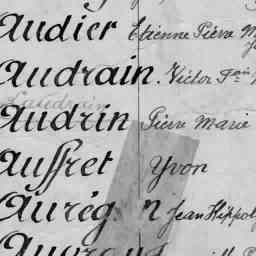 Audier Etienne Pierre M
Audrain. Victor Fois
Laudrain
Audrin Pierre Marie
Auffret Yvon
Aurégan Jean Hippol
Auvrays